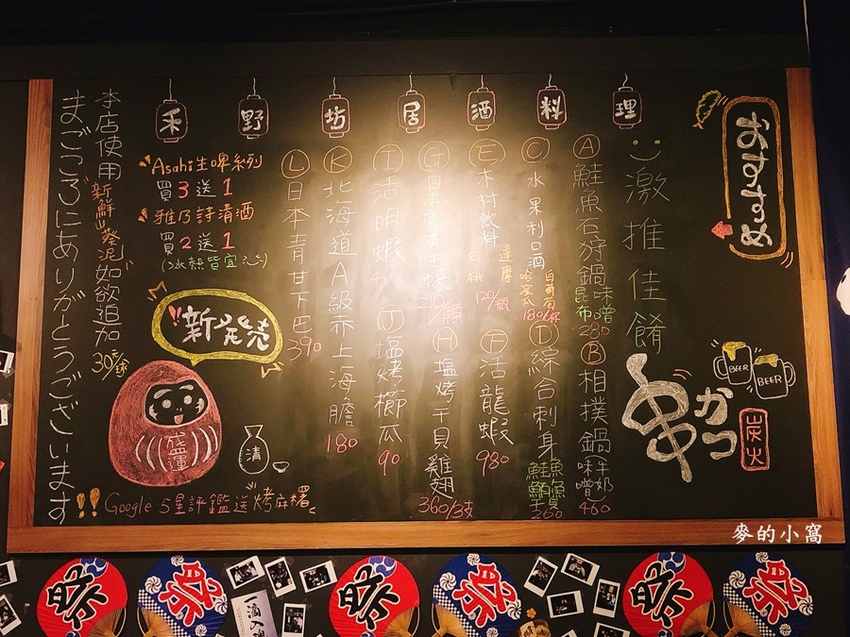 禾野坊居酒料理
おすすめ
激推佳餚
串かつ
炭火
BEER
BEER
Ⓐ鮭魚石狩鍋
味噌
昆布
280
Ⓑ相撲鍋
(牛奶
味噌)
460
Ⓒ水果利口酒
白葡萄
哈密瓜
180/杯
Ⓓ綜合刺身
鮭魚
鮪魚
260
Ⓔ木村飲料
達摩
白桃
120/瓶
Ⓕ活龍蝦
980
Ⓖ日本
210/顆
Ⓗ塩烤干貝雞翅
360/3支
Ⓘ活明蝦
460
Ⓙ塩烤櫛瓜
90
Ⓚ北海道A級赤上海膽
180
Ⓛ日本青甘下巴
390
Asahi生啤系列
買3送1
雅乃詩清酒
買2送1
(冰熱皆宜)
!!新発売
盛運
清
Google 5星評鑑送烤麻糬
本店使用新鮮山葵泥如欲追加
30元/球
まごころにありがとうございます!!
祭
祭
祭
祭
祭
祭
麥的小窩